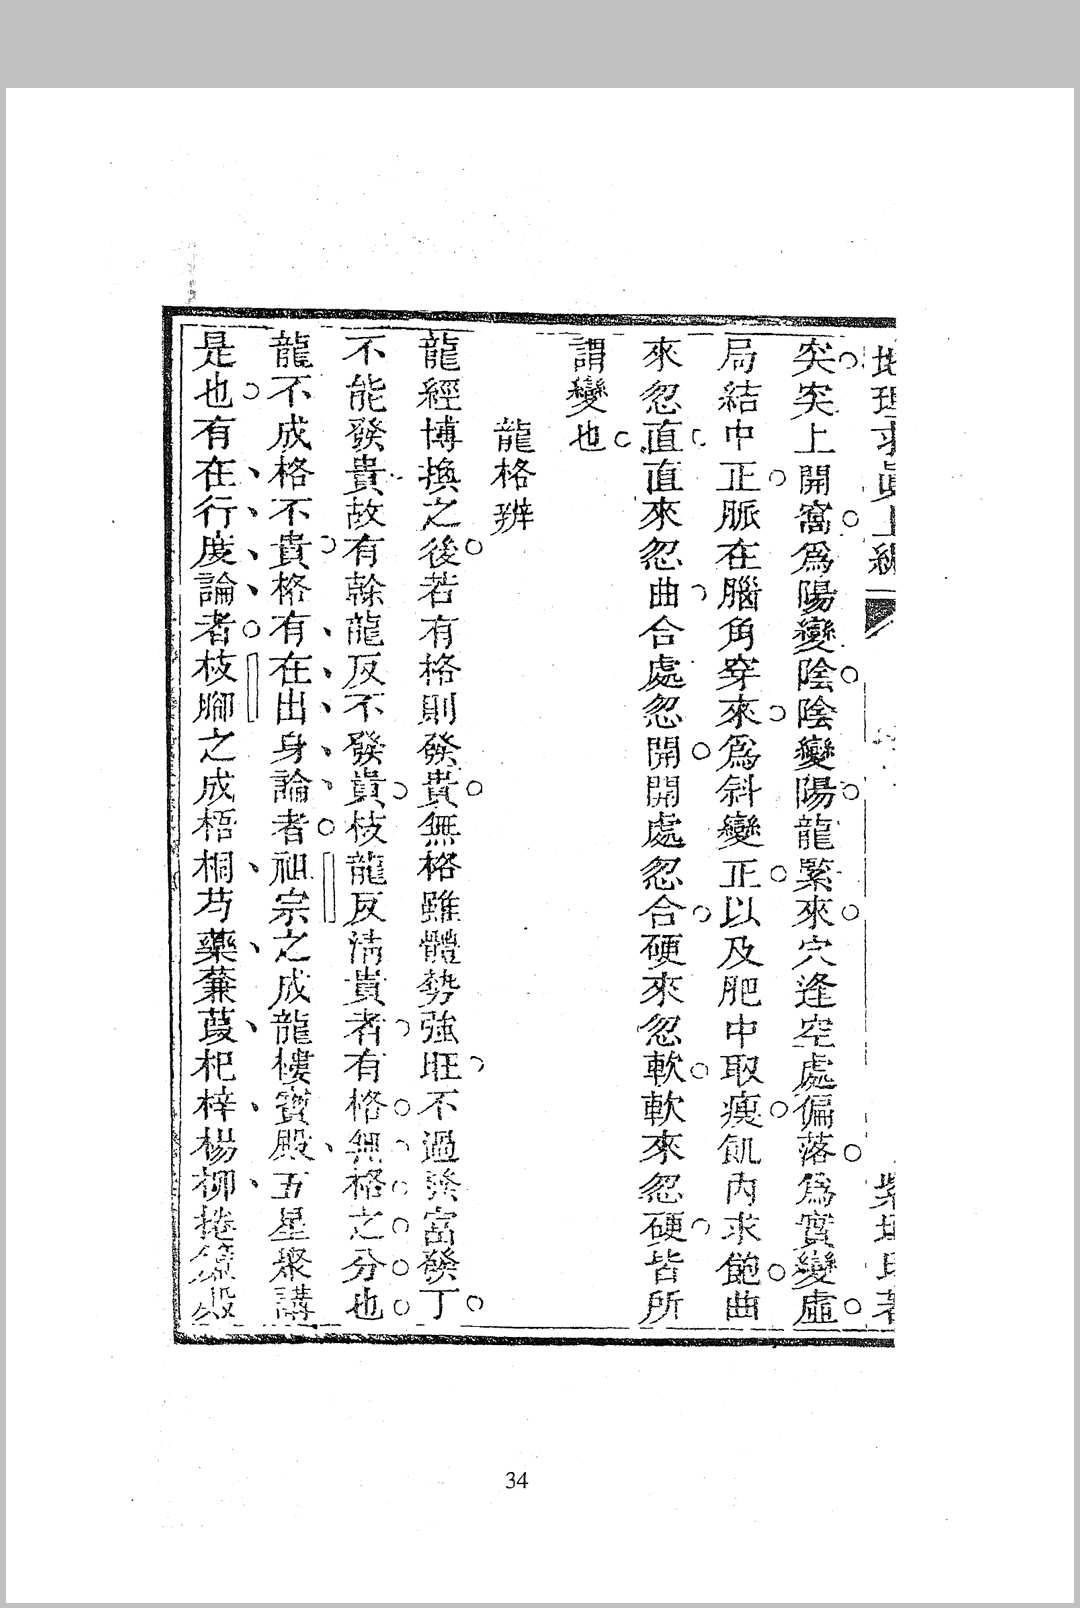 地理求眞上編
突突上開窩爲陽變陰陰變陽龍緊來穴逢空處偏落爲實變虛
局結中正脈在腦角穿來爲斜變正以及肥中取瘦飢內求飽曲
來忽直直來忽曲合處忽開開處忽合硬來忽軟軟來忽硬皆所
謂變也
龍格辨
龍經博換之後若有格則發貴無格雖體勢強旺不過發富發丁
不能發貴故有榦龍反不發貴枝龍反淸貴者有格無格之分也
龍不成格不貴格有在出身論者祖宗之成龍樓寶殿五星聚講
是也有在行度論者枝腳之成梧桐芍藥蒹葭杞梓楊柳捲簾殿
34